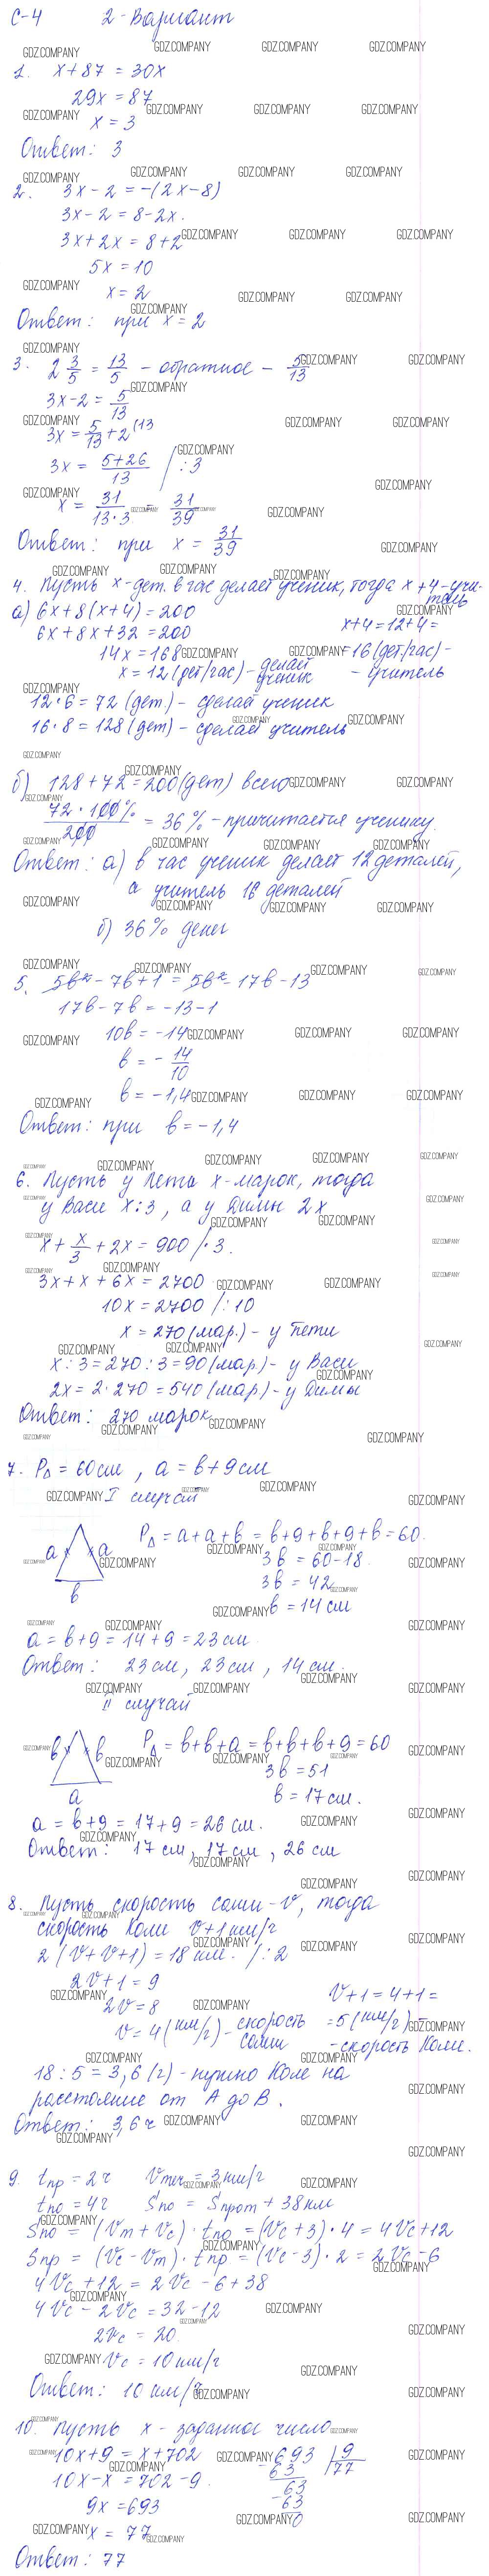 С-4 2-Вариант
1. x+87 = 30x
29x = 87
x = 3
Ответ: 3
2. 3x-2 = -(2x-8)
3x-2 = 8-2x.
3x+2x = 8+2
5x = 10
x = 2
Ответ: при x = 2
3. 2 3/5 = 13/5 - обратное - 5/13
3x-2 = 5/13
3x = 5/13 + 2 (13
3x = (5+26)/13 /:3
x = 31/(13·3) = 31/39
Ответ: при x = 31/39
4. Пусть x-дет. в час делает ученик, тогда x+4-учи-
тель
а) 6x+8(x+4) = 200
6x+8x+32 = 200
14x = 168
x = 12 (дет/час) - делает ученик
x+4=12+4=
=16 (дет/час) -
- учитель
12·6 = 72 (дет.) - сделает ученик
16·8 = 128 (дет) - сделает учитель
б) 128+72 = 200 (дет) всего
72·100%/200 = 36% - причитается ученику.
Ответ: а) в час ученик делает 12 деталей,
а учитель 16 деталей
б) 36% денег
5. 5b² - 7b+1 = 5b² - 17b-13
17b-7b = -13-1
10b = -14
b = -14/10
b = -1,4
Ответ: при b = -1,4
6. Пусть у Пети x-марок, тогда
у Васи x:3, а у Димы 2x
x + x/3 + 2x = 900 /·3.
3x+x+6x = 2700
10x = 2700 /:10
x = 270 (мар.) - у Пети
x:3 = 270:3 = 90 (мар.) - у Васи
2x = 2·270 = 540 (мар) - у Димы
Ответ: 270 марок
7. P△ = 60 см, a = b+9 см
I случай
a a b
P△ = a+a+b = b+9+b+9+b = 60.
3b = 60-18.
3b = 42
b = 14 см
a = b+9 = 14+9 = 23 см.
Ответ: 23 см, 23 см, 14 см.
II случай
b b a
P△ = b+b+a = b+b+b+9 = 60
3b = 51
b = 17 см.
a = b+9 = 17+9 = 26 см.
Ответ: 17 см, 17 см, 26 см
8. Пусть скорость Саши - v, тогда
скорость Коли v+1 км/г
2(v+v+1) = 18 км. /:2
2v+1 = 9
2v = 8
v = 4 (км/г) - скорость Саши
v+1 = 4+1 =
=5 (км/г) -
- скорость Коли.
18:5 = 3,6 (г) - нужно Коле на
расстояние от А до В.
Ответ: 3,6 ч
9. tпр = 2 г Vтеч = 3 км/г
tпо = 4 г Sпо = Sпрот + 38 км
Sпо = (Vт + Vс) · tпо = (Vс+3)·4 = 4Vс+12
Sпр = (Vс - Vт) · tпр = (Vс-3)·2 = 2Vс-6
4Vс+12 = 2Vс-6+38
4Vс-2Vс = 32-12
2Vс = 20
Vс = 10 км/г
Ответ: 10 км/г
10. Пусть x - заданное число
10x+9 = x+702
10x-x = 702-9.
9x = 693
x = 77
693 | 9
-63 77
63
-63
0
Ответ: 77
GDZ.COMPANY